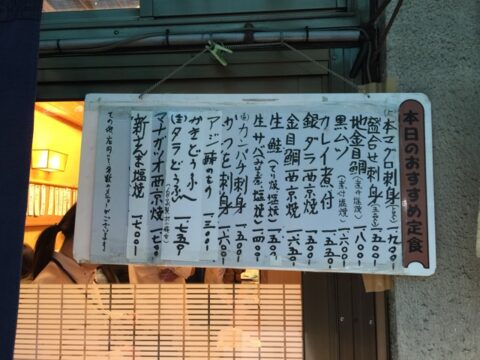 本日のおすすめ定食
本マグロ刺身
盛合せ刺身 一五〇〇
地金目鯛(煮付 塩焼) 一八〇〇
黒ムツ(煮付 塩焼) 一六〇〇
カレイ煮付 一五〇〇
銀ダラ西京焼 一五五〇
金目鯛西京焼 一六五〇
生鮭(てり焼 塩焼) 一五〇〇
生サバ(みそ煮 塩焼) 一四〇〇
カンパチ刺身 一五〇〇
かつを刺身 一六〇〇
アジ酢のもの 一三〇〇
かきどうふ
タラどうふ 一七五〇
マナガツオ西京焼 一七〇〇
新さんま塩焼 一七〇〇
その他店内にも多数のメニューがございます